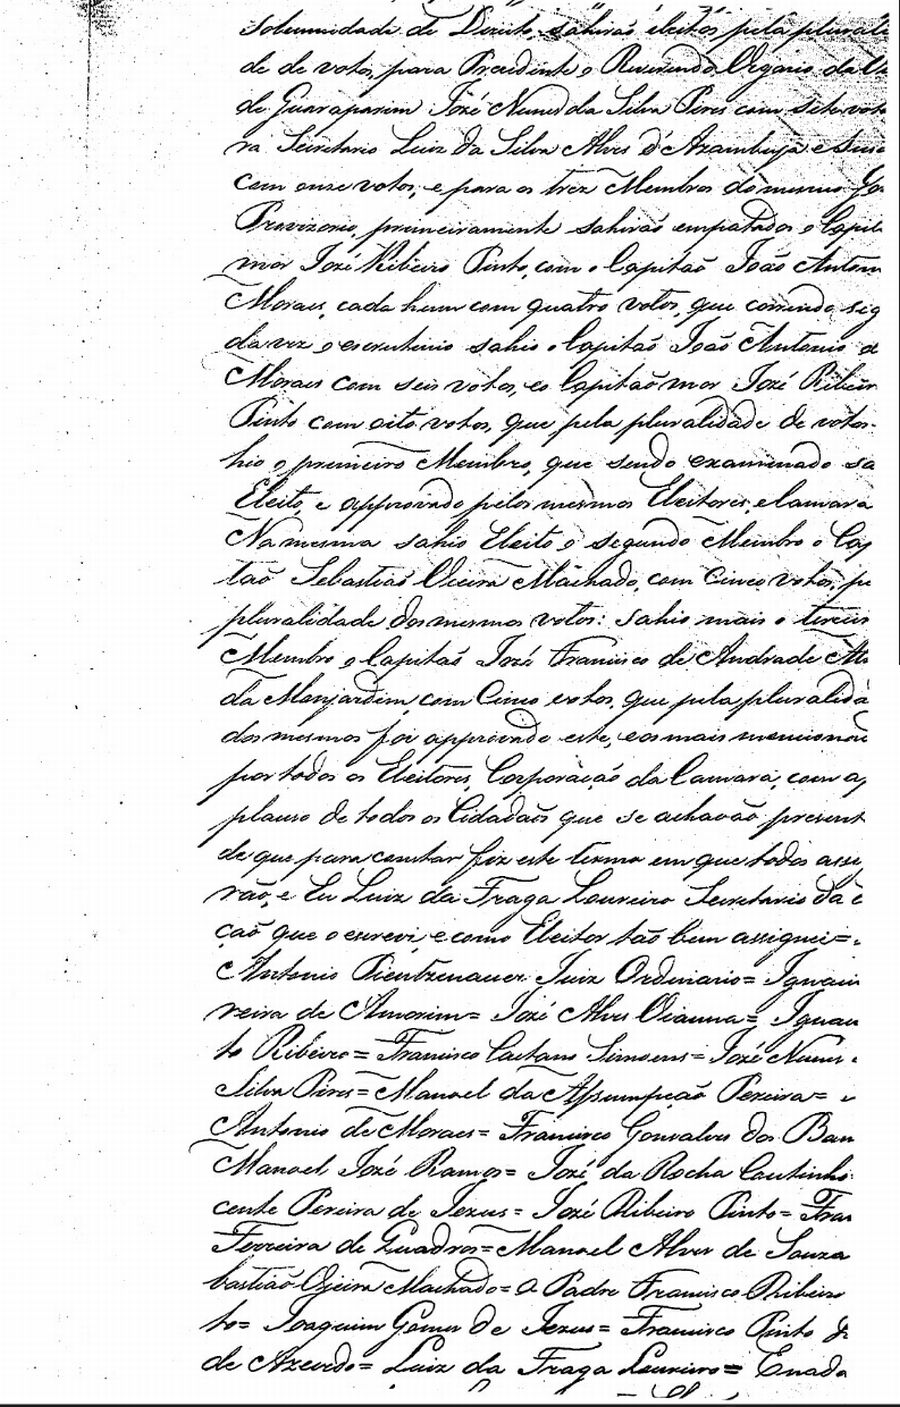 Solemnidade de Direito, sahirão eleitos pela plurali
de de votos, para Prezidente o Reverendo Vigario da Vi
de Guaraparim Jozé Nunes da Silva Pires com sete voto
ra Secretario Luiz da Silva Alves d'Azambuja e Suza
com onze votos, e para os trez Membros do mesmo Go
Provizorio, primeiramente sahirão empatados o Capit
mor Jozé Ribeiro Pinto, com o Capitaõ Joaõ Anton
Moraes, cada hum com quatro votos, que correndo seg
da vez o escrutinio sahio o Capitaõ Joaõ Antonio d
Moraes com seis votos, e o Capitaõ mor Jozé Ribeir
Pinto com oito votos, que pela pluralidade de votos
hio o primeiro Membro, que sendo examinado sa
Eleito, e approvado pelos mesmos Eleitores, e Camara
Na mesma sahio Eleito o segundo Membro o Cap
taõ Sebastiaõ Vieira Machado, com Cinco votos, pe
pluralidade dos mesmos votos: sahio mais o terceir
Membro o Capitaõ Jozé Francisco de Andrade Al
da Monjardim, com Cinco votos, que pela pluralida
dos mesmos foi approvado este, e os mais mencionad
por todos os Eleitores, Corporaçaõ da Camara, com ap
plauso de todos os Cidadaõs que se achavaõ present
de que para constar fiz este termo em que todos assig
raõ, e Eu Luiz da Fraga Loureiro Secretario da e
çaõ que o escrevi, e como Eleitor taõ bem assignei =
Antonio Pientzenauer Juiz Ordinario = Ignaci
reira de Amorim = Jozé Alves Vianna = Ignaci
to Ribeiro = Francisco Caetano Simoens = Jozé Nunes
Silva Pires = Manoel da Assumpçaõ Pereira =
Antonio de Moraes = Francisco Gonsalves dos
Manoel Jozé Ramos = Jozé da Rocha Coutinho
cente Pereira de Jezus = Jozé Ribeiro Pinto = Fran
Ferreira de Quadros = Manoel Alves de Souza
bastiaõ Vieira Machado = O Padre Francisco Ribeiro
to = Joaquim Gomes de Jezus = Francisco Pinto
de Azevedo = Luiz da Fraga Loureiro = E nada